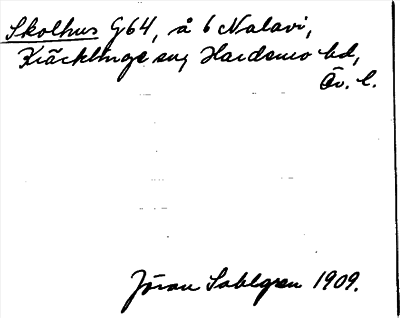 Skolhus G64, å 6 Nalavi,
Kräcklinge sn, Hardemo hd,
Ör. l.
Jöran Sahlgren 1909.